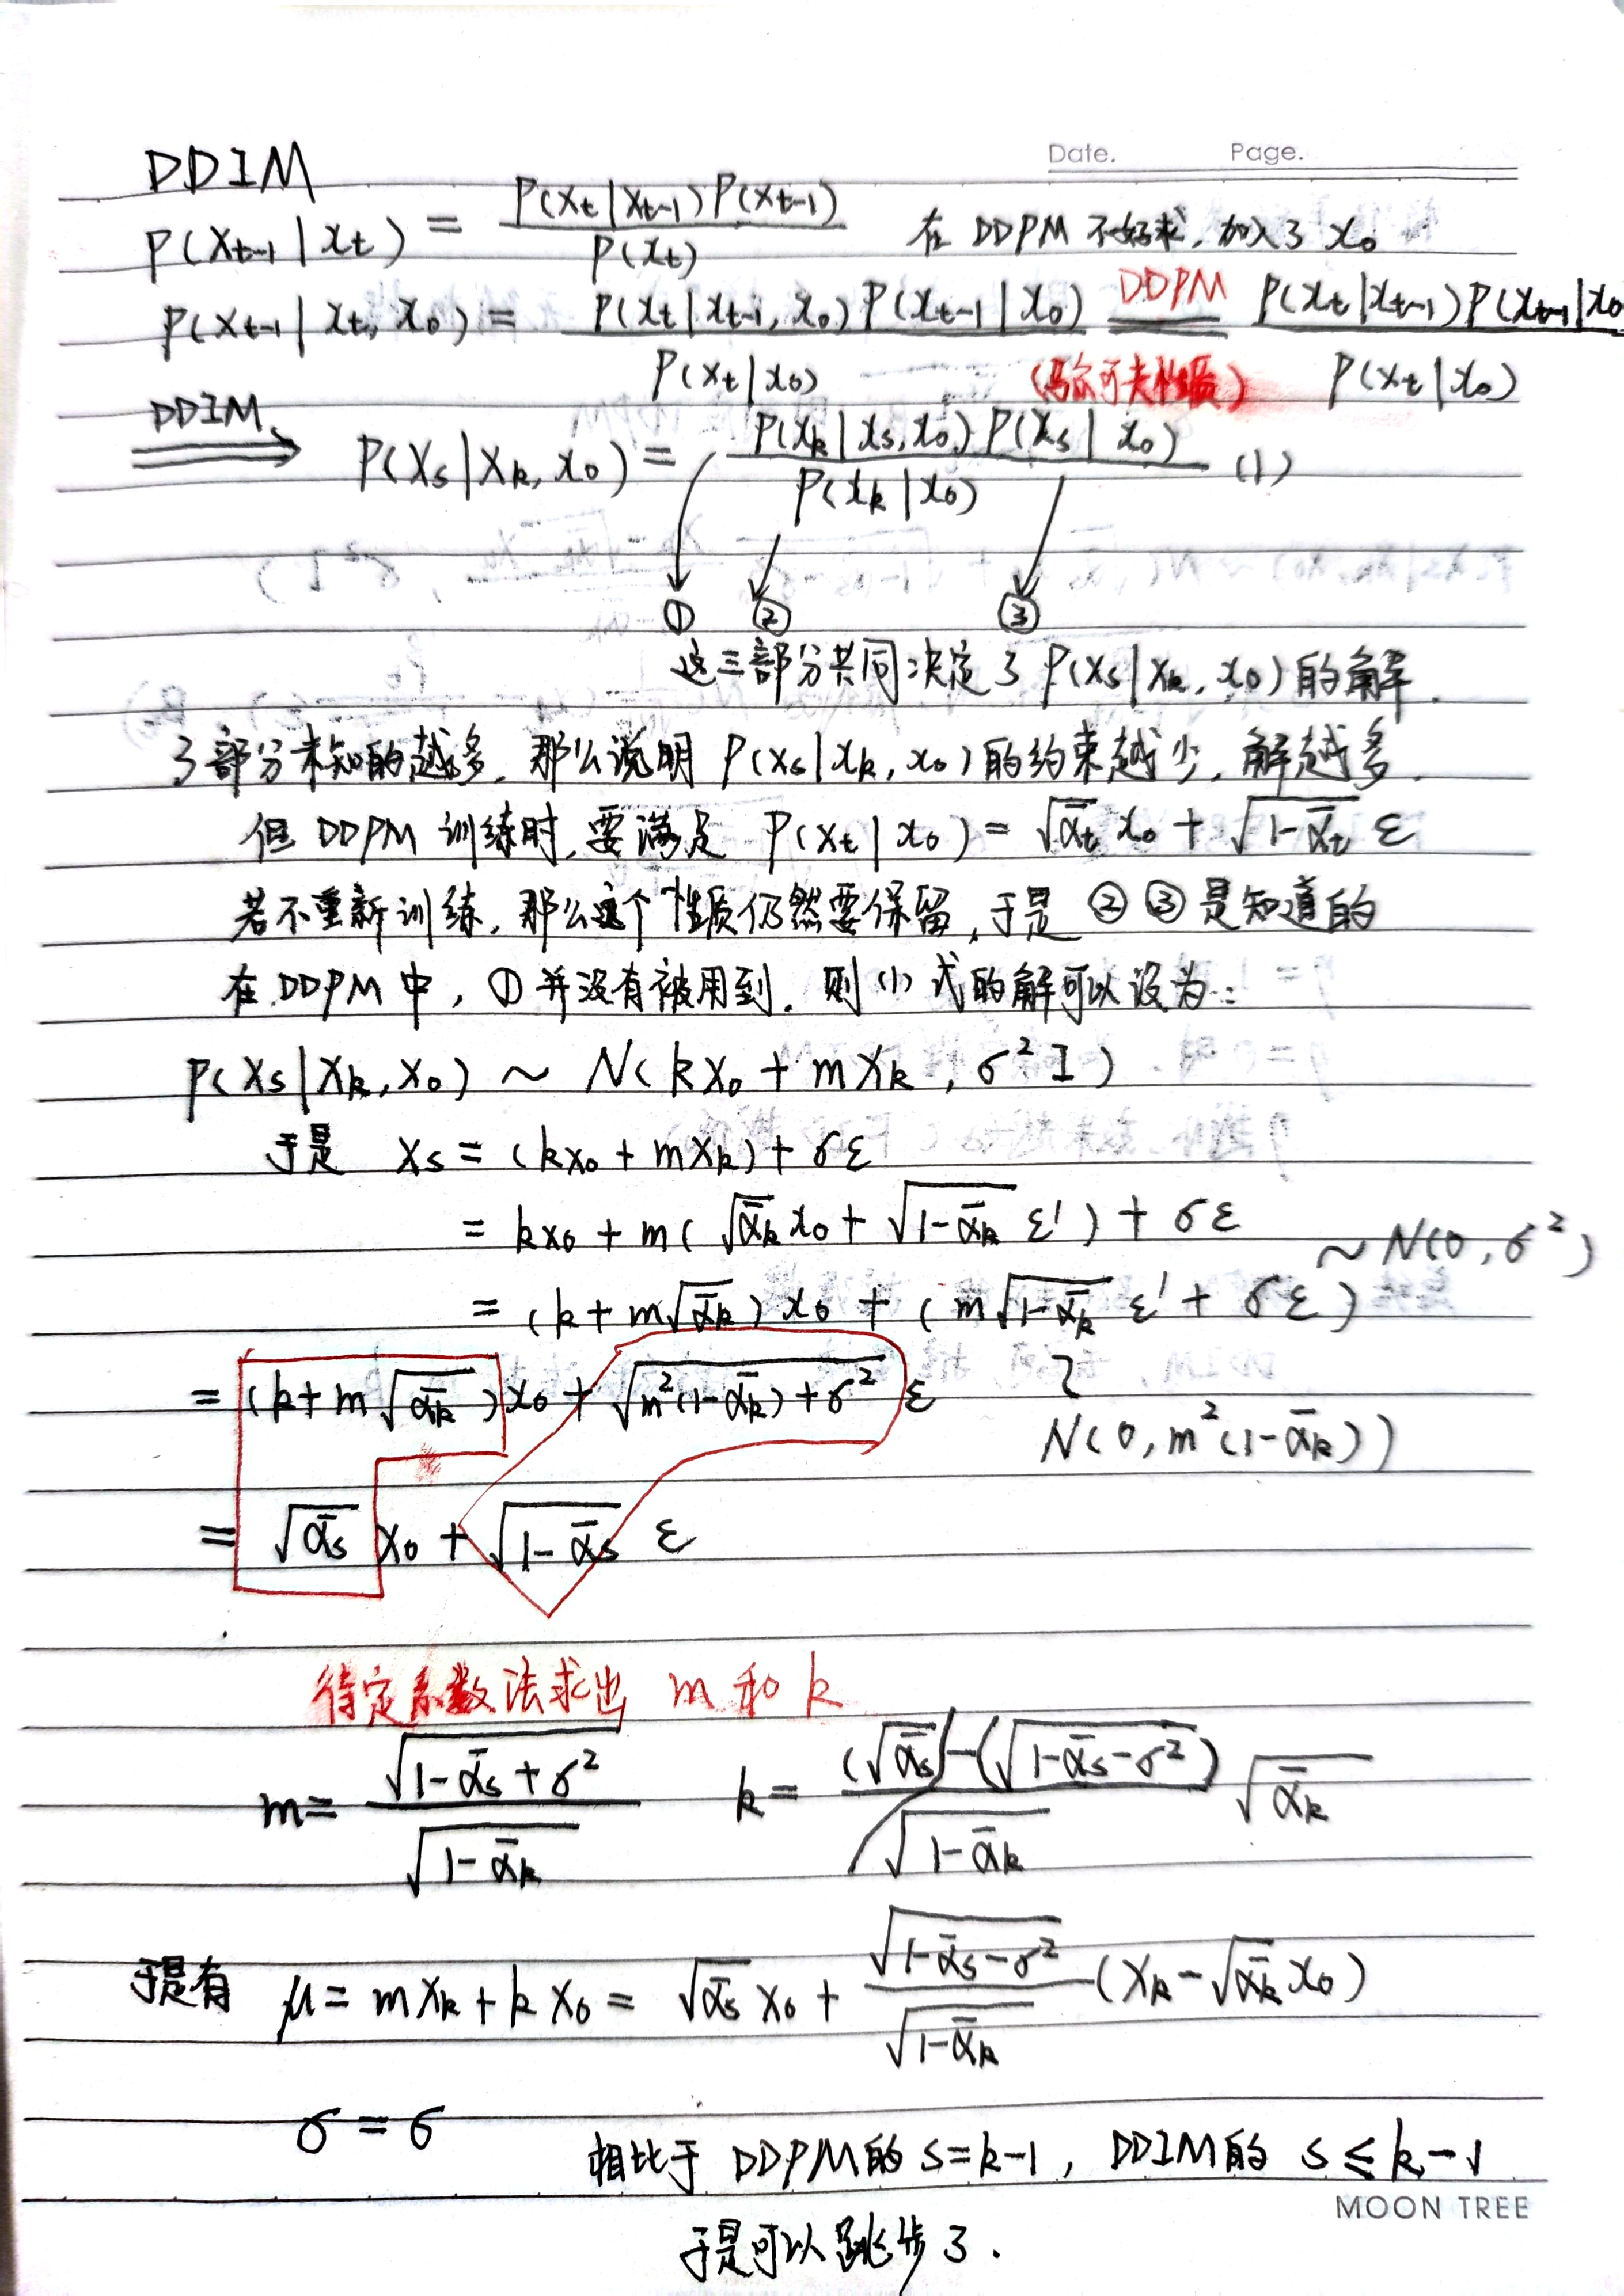 Date. Page.
DDIM
P(Xt-1|xt) = P(Xt|Xt-1)P(Xt-1) / P(xt) 在 DDPM 不好求, 加入了 x₀
P(Xt-1|xt, x₀) = P(xt|xt-1, x₀)P(xt-1|x₀) / P(xt|x₀) DDPM = (马尔可夫性质) P(xt|xt-1)P(xt-1|x₀ / P(xt|x₀)
DDIM ⟹ P(Xs|Xk, x₀) = P(xk|xs, x₀)P(xs|x₀) / P(xk|x₀) (1)
① ② ③
这三部分共同决定了 P(xs|xk, x₀)的解.
3部分未知的越多, 那么说明 P(xs|xk, x₀)的约束越少, 解越多.
但 DDPM 训练时, 要满足 P(xt|x₀) = √ᾱt x₀ + √(1-ᾱt) ε
若不重新训练, 那么这个性质仍然要保留, 于是 ② ③ 是知道的
在 DDPM 中, ① 并没有被用到. 则 (1) 式的解可以设为:
P(Xs|Xk, X₀) ~ N(kX₀ + mXk, σ²I)
于是 Xs = (kx₀ + mXk) + σε
= kx₀ + m(√ᾱk x₀ + √(1-ᾱk) ε') + σε
~ N(0, σ²)
= (k + m√ᾱk) x₀ + (m√(1-ᾱk) ε' + σε)
= (k + m√ᾱk)x₀ + √(m²(1-ᾱk) + σ²) ε
~
N(0, m²(1-ᾱk))
= √ᾱs x₀ + √(1-ᾱs) ε
待定系数法求出 m 和 k
m = √(1-ᾱs + σ²) / √(1-ᾱk) k = (√ᾱs) - (√(1-ᾱs-σ²)) / √(1-ᾱk) √ᾱk
于是有 μ = mXk + kX₀ = √ᾱs X₀ + √(1-ᾱs-σ²) / √(1-ᾱk) (Xk - √ᾱk x₀)
σ = σ
相比于 DDPM的 s=k-1, DDIM的 s ≤ k-1
MOON TREE
于是可以跳步了.